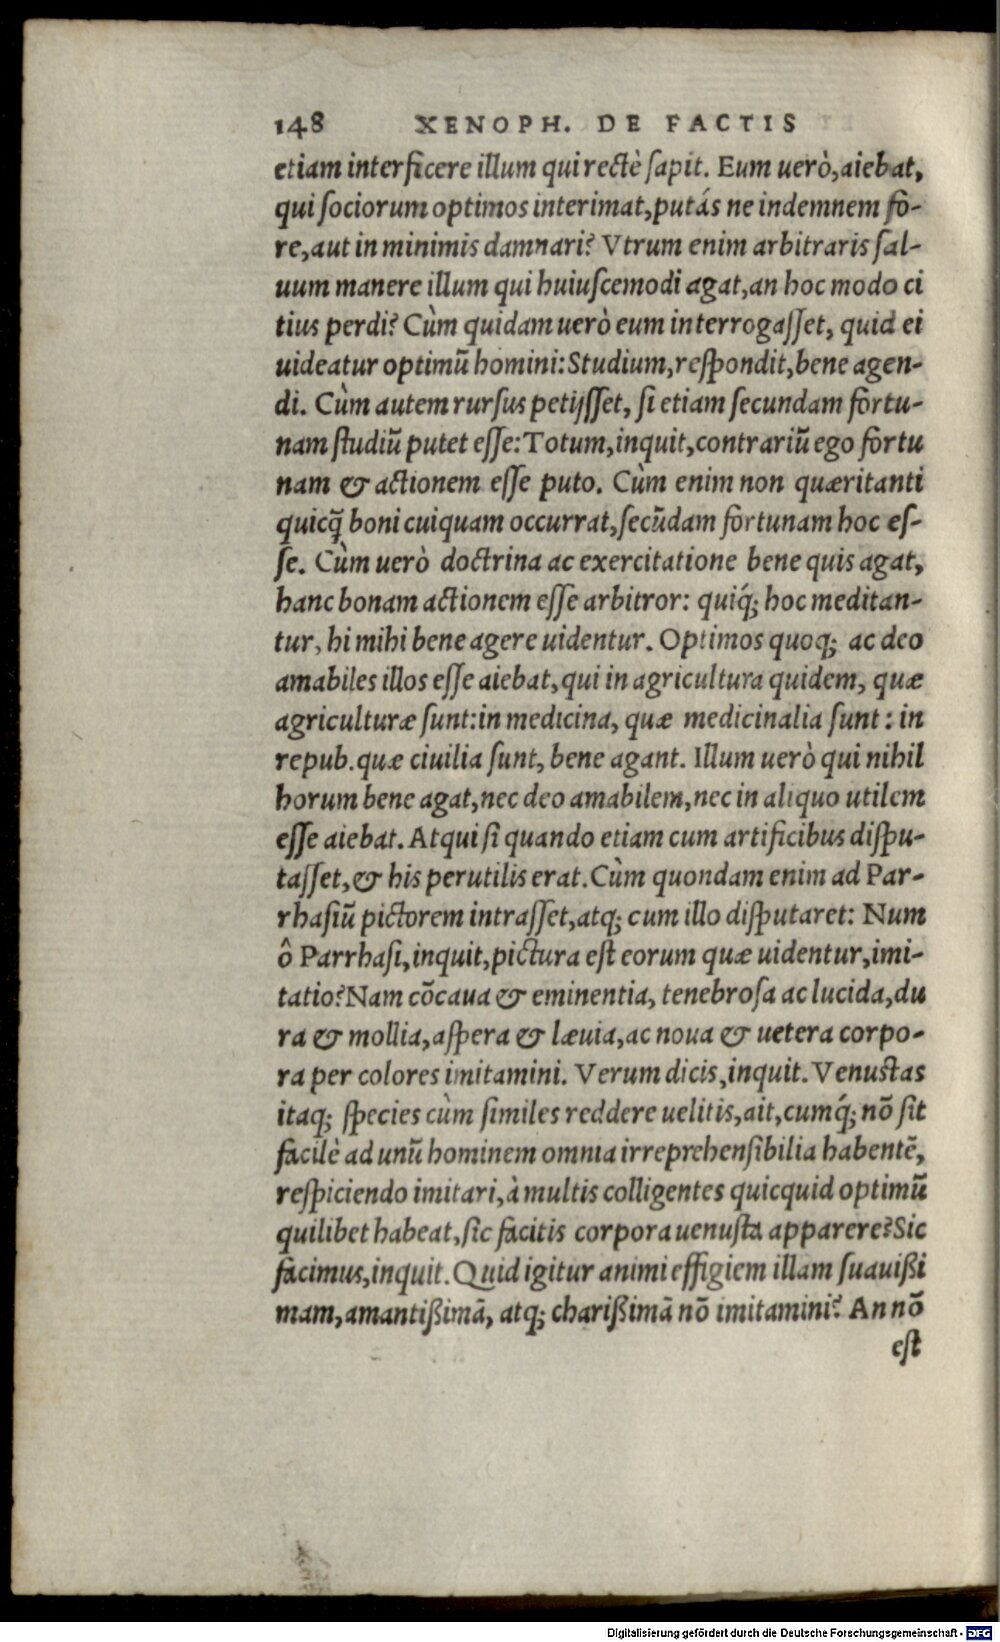 148 XENOPH. DE FACTIS
etiam interficere illum qui rectè ſapit. Eum uerò, aiebat,
qui ſociorum optimos interimat, putás ne indemnem fo-
re, aut in minimis damnari? Vtrum enim arbitraris ſal-
uum manere illum qui huiuſcemodi agat, an hoc modo ci
tius perdi? Cùm quidam uerò eum interrogaſſet, quid ei
uideatur optimũ homini: Studium, reſpondit, bene agen-
di. Cùm autem rurſus petijſſet, ſi etiam ſecundam fortu-
nam ſtudiũ putet eſſe: Totum, inquit, contrariũ ego fortu
nam & actionem eſſe puto. Cùm enim non quæritanti
quicq̃ boni cuiquam occurrat, ſecũdam fortunam hoc eſ-
ſe. Cùm uerò doctrina ac exercitatione bene quis agat,
hanc bonam actionem eſſe arbitror: quiq́; hoc meditan-
tur, hi mihi bene agere uidentur. Optimos quoq; ac deo
amabiles illos eſſe aiebat, qui in agricultura quidem, quæ
agriculturæ ſunt: in medicina, quæ medicinalia ſunt: in
repub. quæ ciuilia ſunt, bene agant. Illum uerò qui nihil
horum bene agat, nec deo amabilem, nec in aliquo utilem
eſſe aiebat. Atqui ſi quando etiam cum artificibus diſpu-
taſſet, & his perutilis erat. Cùm quondam enim ad Par-
rhaſiũ pictorem intraſſet, atq; cum illo diſputaret: Num
ô Parrhaſi, inquit, pictura eſt eorum quæ uidentur, imi-
tatio? Nam cõcaua & eminentia, tenebroſa ac lucida, du
ra & mollia, aſpera & læuia, ac noua & uetera corpo-
ra per colores imitamini. Verum dicis, inquit. Venuſtas
itaq; ſpecies cùm ſimiles reddere uelitis, ait, cumq́; nõ ſit
facilè ad unũ hominem omnia irreprehenſibilia habentẽ,
reſpiciendo imitari, à multis colligentes quicquid optimũ
quilibet habeat, ſic facitis corpora uenuſta apparere? Sic
facimus, inquit. Quid igitur animi effigiem illam ſuauißi
mam, amantißimã, atq; charißimã nõ imitamini? An nõ
eſt
Digitalisierung gefördert durch die Deutsche Forschungsgemeinschaft - DFG